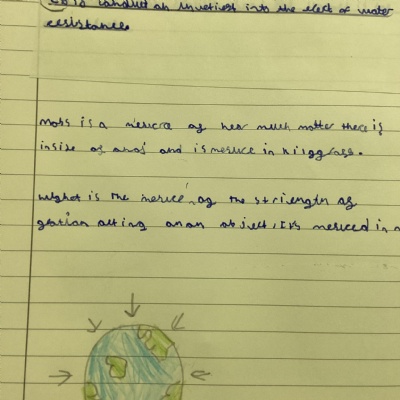 to conduct an investiest into the efect of water
resistance
mass is a mesura of how much matter there is
inside of anoj and is mesurce in kilggrass.
weight is the mesurce of the striength of
gration atting on an object, It's mesriced in n